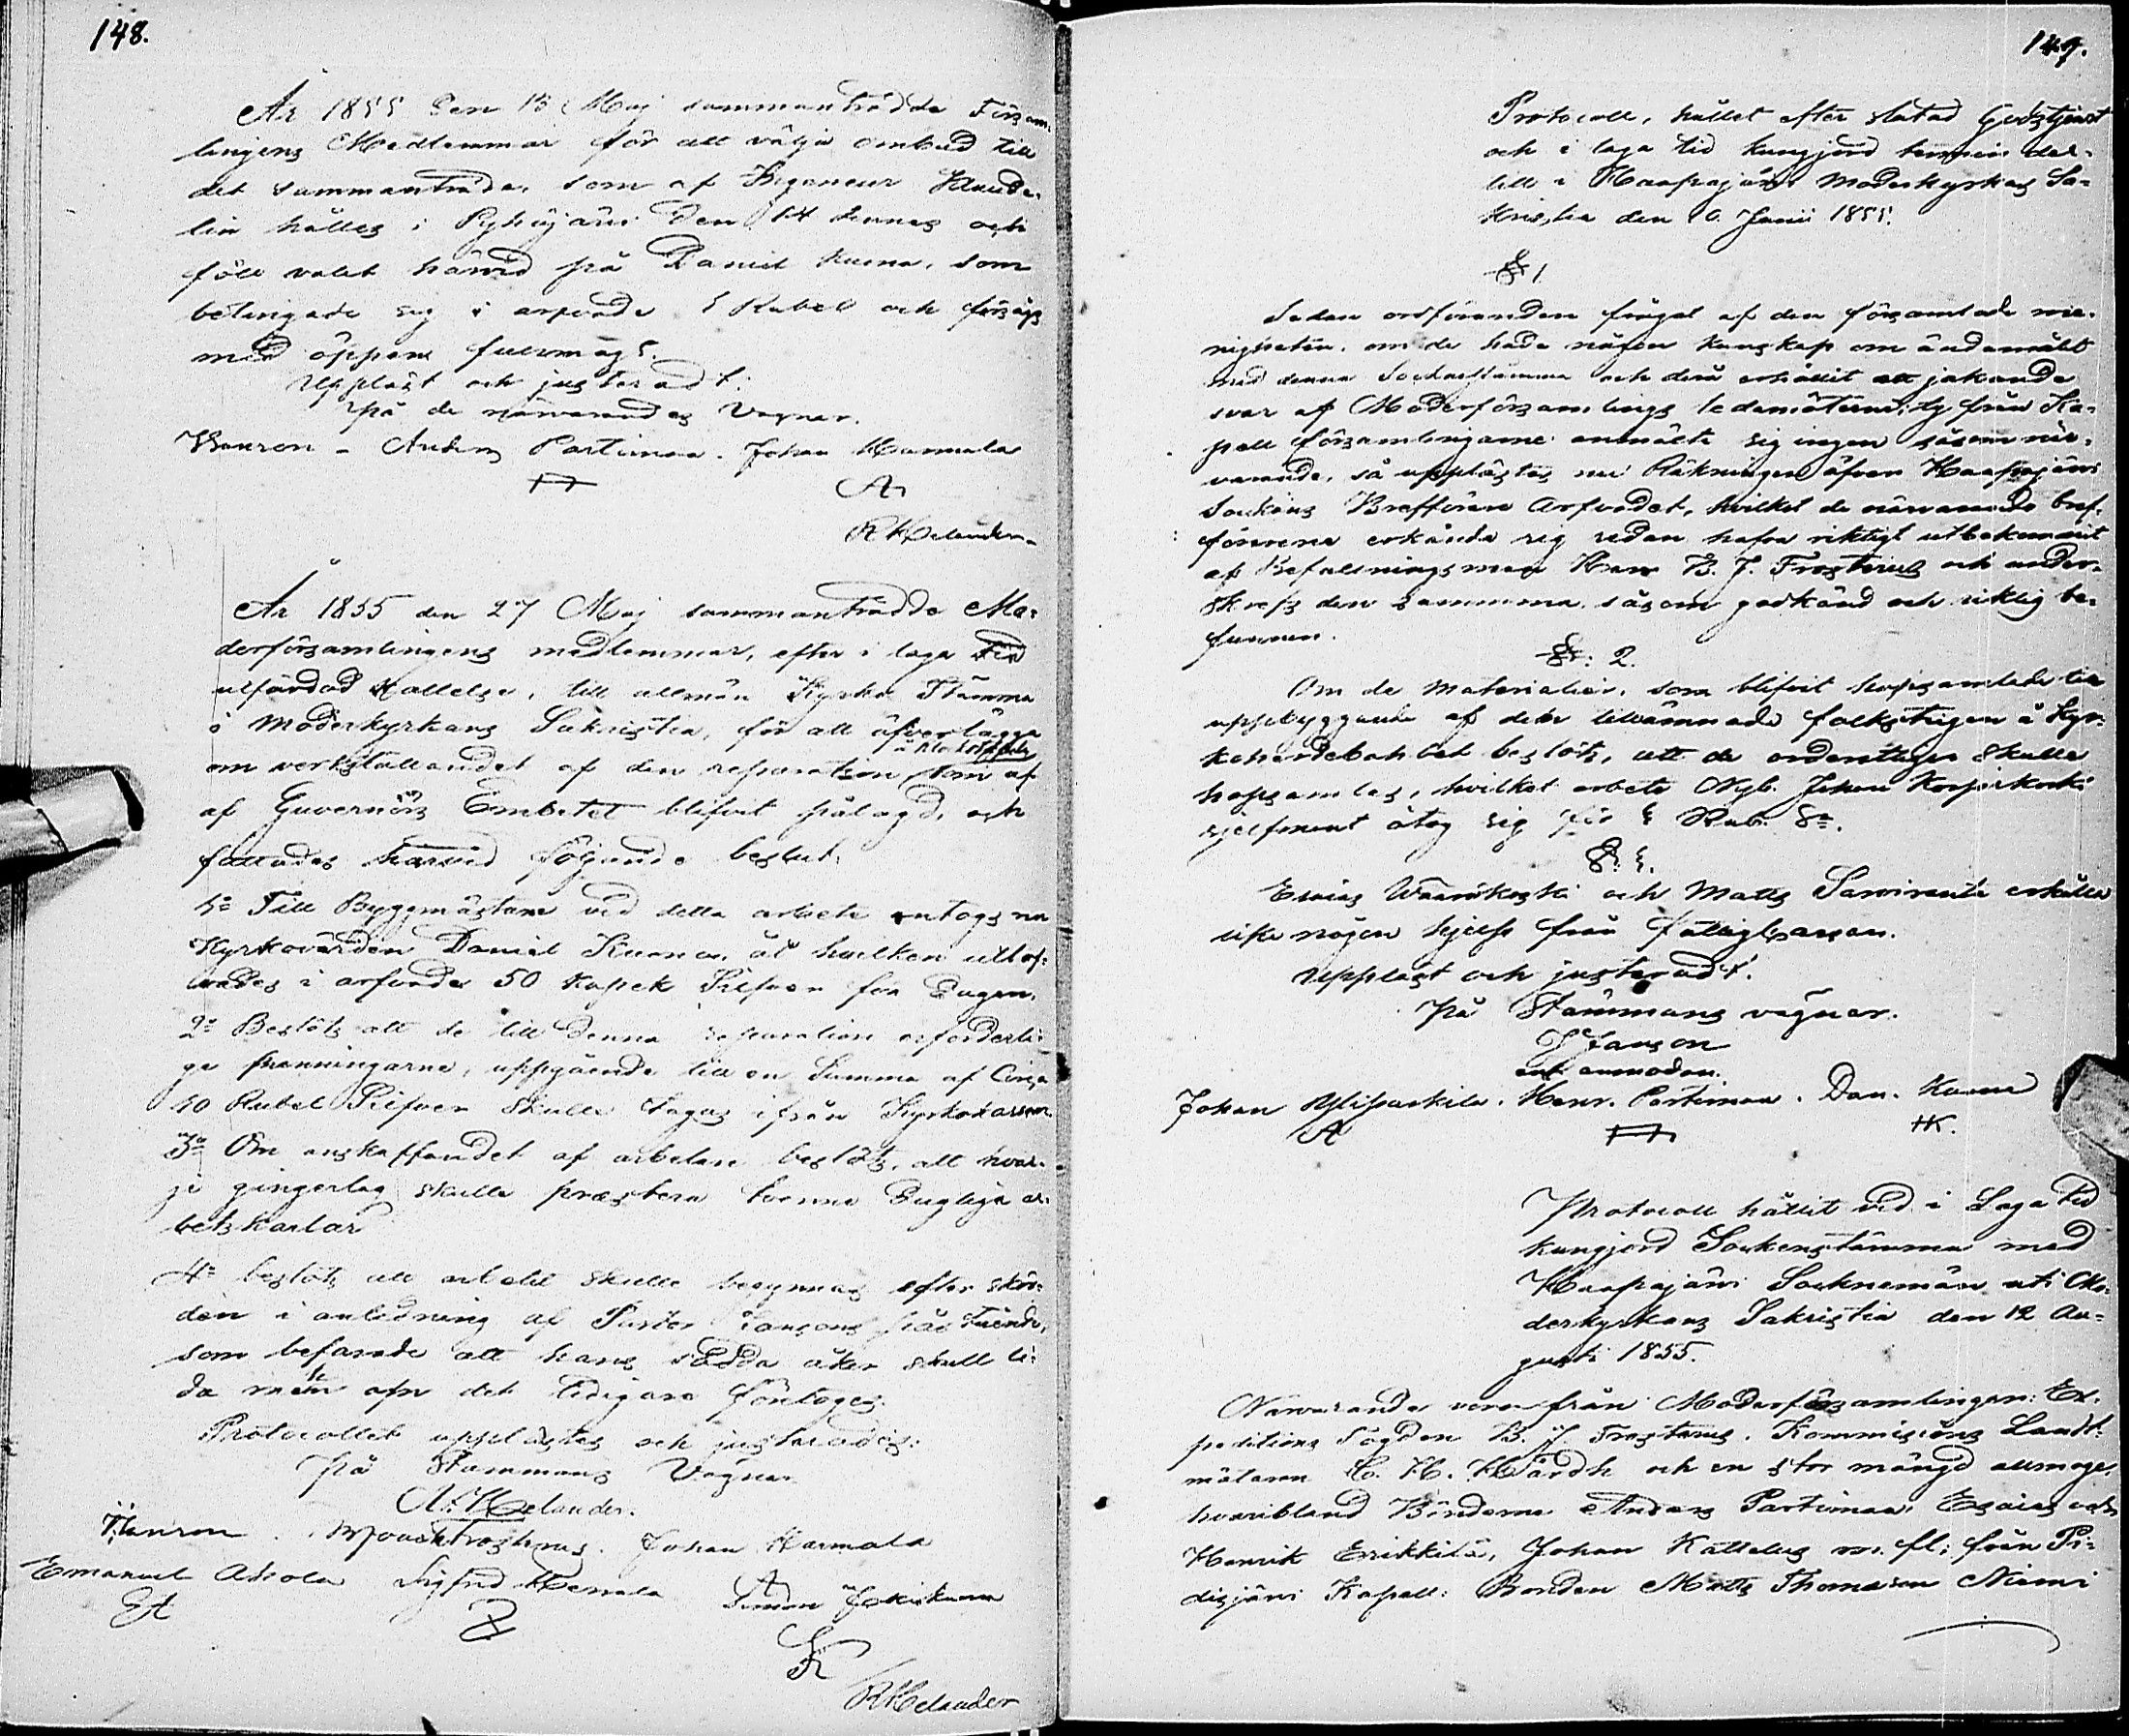 148.
År 1855 den 13 Maj sammanträdde Försam-
lingens Medlemmar för att välja ombud till
det sammanträde, som af Ingeneur
lin hålles i Pyhäjärvi den 14 dennes och
föll valet härvid på Daniel Kuona, som
betingade sig i arfvode 5 Rubel och försågs
med öppen fullmagt.
Uppläst och justeradt:
På de närvarandes Vägnar.
Anders Partimaa. Johan Harmala
A
R Helander
År 1855 den 27 Maj sammanträdde Mo-
derförsamlingens medlemmar, efter i laga tid
utfärdad kallelse, till allmän Kyrko Stämma
i Moderkyrkans Sakristia, för att öfverlägga
om verkställandet af den reparation, som af
af Guvernörs Embetet blifvit pålagd, och
fattades härvid följande beslut:
1o Till Byggmästare vid detta arbete antogs nu
Kyrkovärden Daniel Kuona, åt hvilken utlof-
vades i arfvode 50 Kopek Silfver för Dagen.
2o Beslöts att de till denna reparation erforderli-
ga penningarne, uppgående till en Summa af Cirça
10 Rubel Silfver skulle tagas ifrån Kyrkokassan
3o Om anskaffandet af arbetare beslöts, att hvar-
je gingerlag skulle præstera tvenne dugliga ar-
betskarlar
4o beslöts att arbetet skulle begynnas efter skör-
den i anledning af Pastor Jansons påstående,
som befarade att hans sådda åker skull li-
da men om det tidigare företoges.
Protocollet upplästes och justerades:
På Stämmans Vägnar
Helander.
Johan Harmala
Emanuel Ahola Sigfrid Simon
R Helander
149.
Protocoll, hållet efter slutad Gudstjenst
och i laga tid kungjord termin der-
till i Haapajärvi Moderkyrkas Sa-
kristia den 10 Junii 1855.
§ 1
Sedan ordföranden frågat af den församlade me-
nigheten, om de hade någon kunskap om ändamålet
med denna Sockenstämma och dera erhållit ett jakande
svar af Moderförsamlings ledamöterne; ty från Ka-
pell församlingarne anmälte sig ingen såsom när-
varande, så upplästes nu Räkningen öfver Haapajärvi
Sockens Brefförare Arfvodet, hvilket de närvarande bref-
förarena erkände sig redan hafva riktigt utbekommit
af Befallningsman Herr B. J. Frosterus och under-
skrefs den samma såsom godkänd och riktig be-
funnen.
§: 2.
Om de Materialier, som blifvit hopsamlade till
uppbyggande af den tillämnade folkstugan å Kyr-
koherdebohlet beslöts, att de ordentligen skulle
hopsamlas, hvilket arbete Nyb. Johan Korpikoski
sjelfmant åtog sig för 5 Rub. Sr.
§: 3.
Esaias Waarikoski och Matts Sarviranta erhålla
icke någon hjelp från fattigkassan.
Upplast och justeradt.
På Stämmans vägnar.
J Janson
ant anmodan.
Johan Ylipaakila. Henr. Partimaa. Dan. Kuona
A HK.
Protocoll hållit vid i Laga tid
kungjord Sockenstämma med
Haapajärvi Socknemän uti Mo-
derkyrkans Sakristia den 12 Au-
gusti 1855.
Närvarande voro från Moderförsamlingen: Ex-
peditions Fogden B. J. Frosterus, Kommissions Landt-
mätaren C. H. Hårdh och en stor mängd allmoge,
hvaribland Bönderna Anders Partimaa, Esaias och
Henrik Erikkilä, Johan Kattelus m. fl; från Pi-
disjärvi Kapell: Bonden Matts Thomason Niemi